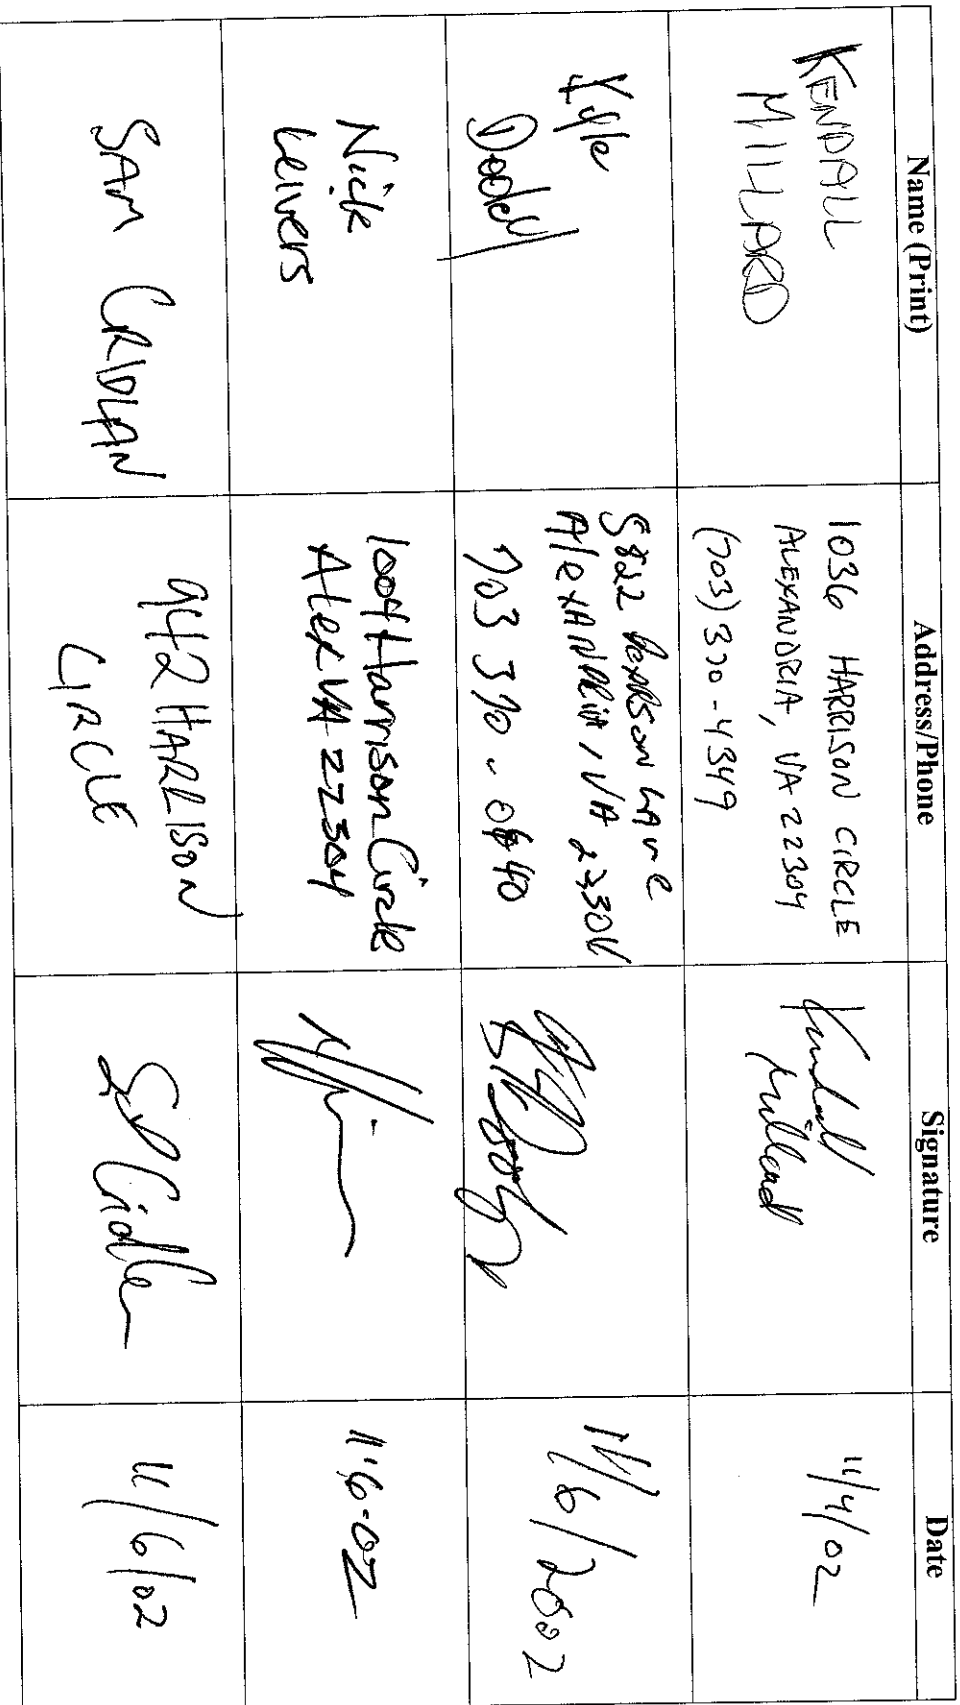 Name (Print) Address/Phone Signature Date
KENDALL
MILLARD
1036 HARRISON CIRCLE
ALEXANDRIA, VA 22304
(703) 370-4349
Kendall
Millard
11/4/02
Kyle
Dooley
5822 LANE
AlexANDRiA, VA 2230
703 370 - 40
11/6/2002
Nick
Leivers
1004 Harrison Circle
Alex VA 22304
11-6-02
SAM CRIDLAN
942 HARRISON
CIRCLE
S Cridlan
11/6/02